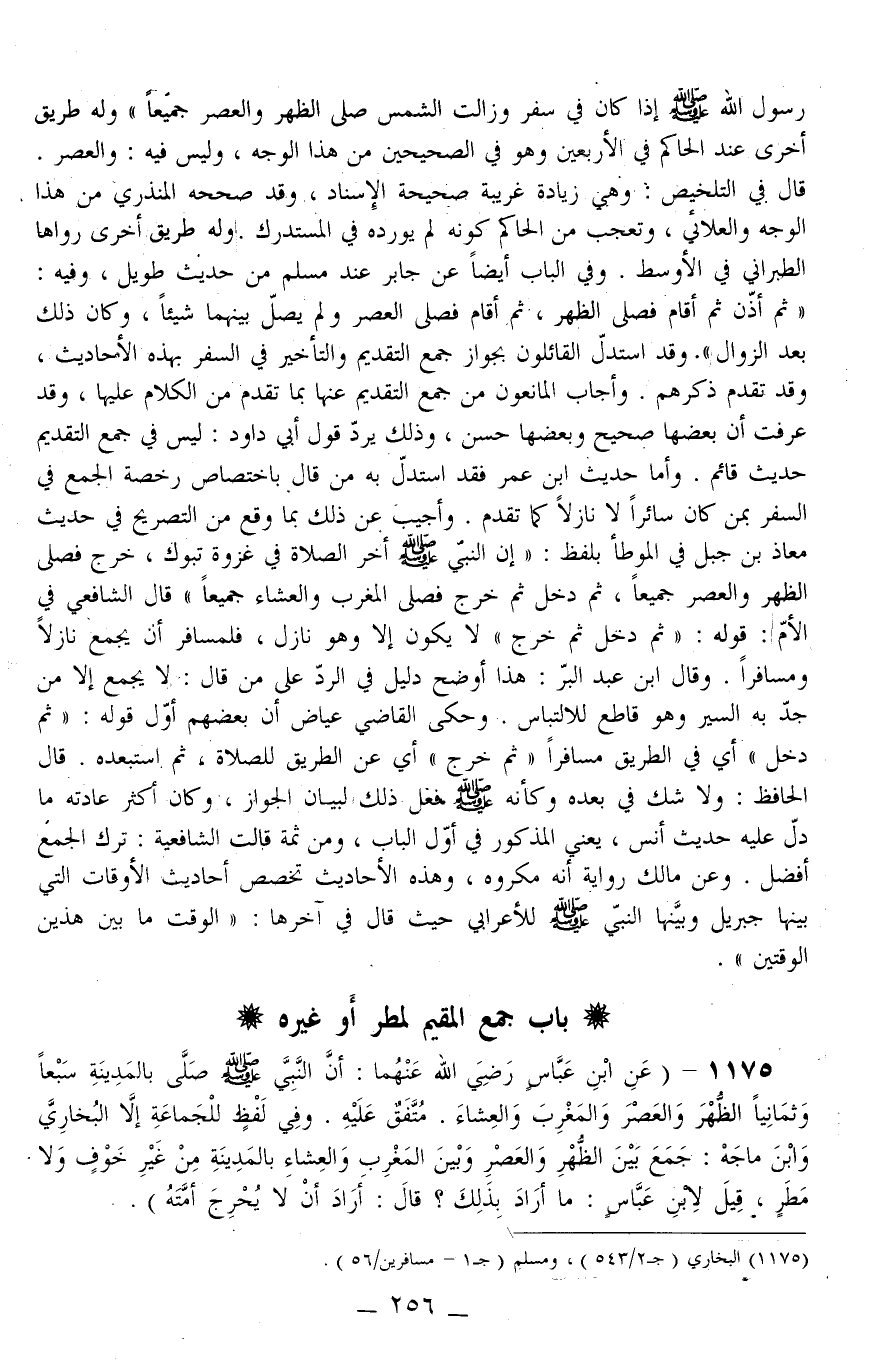 رسول الله ﷺ إذا كان في سفر وزالت الشمس صلى الظهر والعصر جميعاً » وله طريق
أخرى عند الحاكم في الأربعين وهو في الصحيحين من هذا الوجه ، وليس فيه : والعصر .
قال في التلخيص : وهي زيادة غريبة صحيحة الإسناد ، وقد صححه المنذري من هذا
الوجه والعلائي ، وتعجب من الحاكم كونه لم يورده في المستدرك . وله طريق أخرى رواها
الطبراني في الأوسط . وفي الباب أيضاً عن جابر عند مسلم من حديث طويل ، وفيه :
« ثم أذّن ثم أقام فصلى الظهر ، ثم أقام فصلى العصر ولم يصلّ بينهما شيئاً ، وكان ذلك
بعد الزوال ». وقد استدلّ القائلون بجواز جمع التقديم والتأخير في السفر بهذه الأحاديث ،
وقد تقدم ذكرهم . وأجاب المانعون من جمع التقديم عنها بما تقدم من الكلام عليها ، وقد
عرفت أن بعضها صحيح وبعضها حسن ، وذلك يردّ قول أبي داود : ليس في جمع التقديم
حديث قائم . وأما حديث ابن عمر فقد استدلّ به من قال باختصاص رخصة الجمع في
السفر بمن كان سائراً لا نازلاً كما تقدم . وأجيب عن ذلك بما وقع من التصريح في حديث
معاذ بن جبل في الموطأ بلفظ : « إن النبيّ ﷺ أخر الصلاة في غزوة تبوك ، خرج فصلى
الظهر والعصر جميعاً ، ثم دخل ثم خرج فصلى المغرب والعشاء جميعاً » قال الشافعي في
الأمّ : قوله : « ثم دخل ثم خرج » لا يكون إلا وهو نازل ، فلمسافر أن يجمع نازلاً
ومسافراً . وقال ابن عبد البرّ : هذا أوضح دليل في الردّ على من قال : لا يجمع إلا من
جدّ به السير وهو قاطع للالتباس . وحكى القاضي عياض أن بعضهم أوّل قوله : « ثم
دخل » أي في الطريق مسافراً « ثم خرج » أي عن الطريق للصلاة ، ثم استبعده . قال
الحافظ : ولا شك في بعده وكأنه ﷺ فعل ذلك لبيان الجواز ، وكان أكثر عادته ما
دلّ عليه حديث أنس ، يعني المذكور في أوّل الباب ، ومن ثمة قالت الشافعية : ترك الجمع
أفضل . وعن مالك رواية أنه مكروه ، وهذه الأحاديث تخصص أحاديث الأوقات التي
بينها جبريل وبيَّنها النبيّ ﷺ للأعرابي حيث قال في آخرها : « الوقت ما بين هذين
الوقتين » .
✸ باب جمع المقيم لمطر أو غيره ✸
١١٧٥ - ( عَنِ ابْنِ عَبَّاسٍ رَضِيَ الله عَنْهُما : أنَّ النَّبيَّ ﷺ صَلَّى بالمَدِينَةِ سَبْعاً
وَثمَانِياً الظُّهْرَ وَالعَصْرَ وَالمَغْرِبَ وَالعِشاءَ . مُتَّفَقٌ عَلَيْهِ . وفِي لَفْظٍ للْجَماعَةِ إلَّا البُخارِيَّ
وَابْنَ ماجَهْ : جَمَعَ بَيْنَ الظُّهْرِ وَالعَصْرِ وَبْينَ المَغْرِبِ وَالعِشاءِ بالمَدِينَةِ مِنْ غَيْرِ خَوْفٍ وَلا
مَطَرٍ ، قِيلَ لِابْنِ عَبَّاسٍ : ما أرَادَ بِذَلِكَ ؟ قالَ : أرَادَ أنْ لا يُحْرِجَ أمَّتَهُ ) .
(١١٧٥) البخاري ( جـ٥٤٣/٢ ) ، ومسلم ( جـ١ - مسافرين/٥٦ ) .
_ ٢٥٦ _